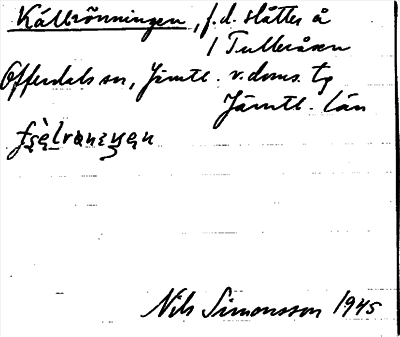 Källrönningen, f.d. slåtter å
/ Tulleråsen
Offerdals sn, Jämtl. v. doms. tg
Jämtl. län
Nils Simonsson 1945